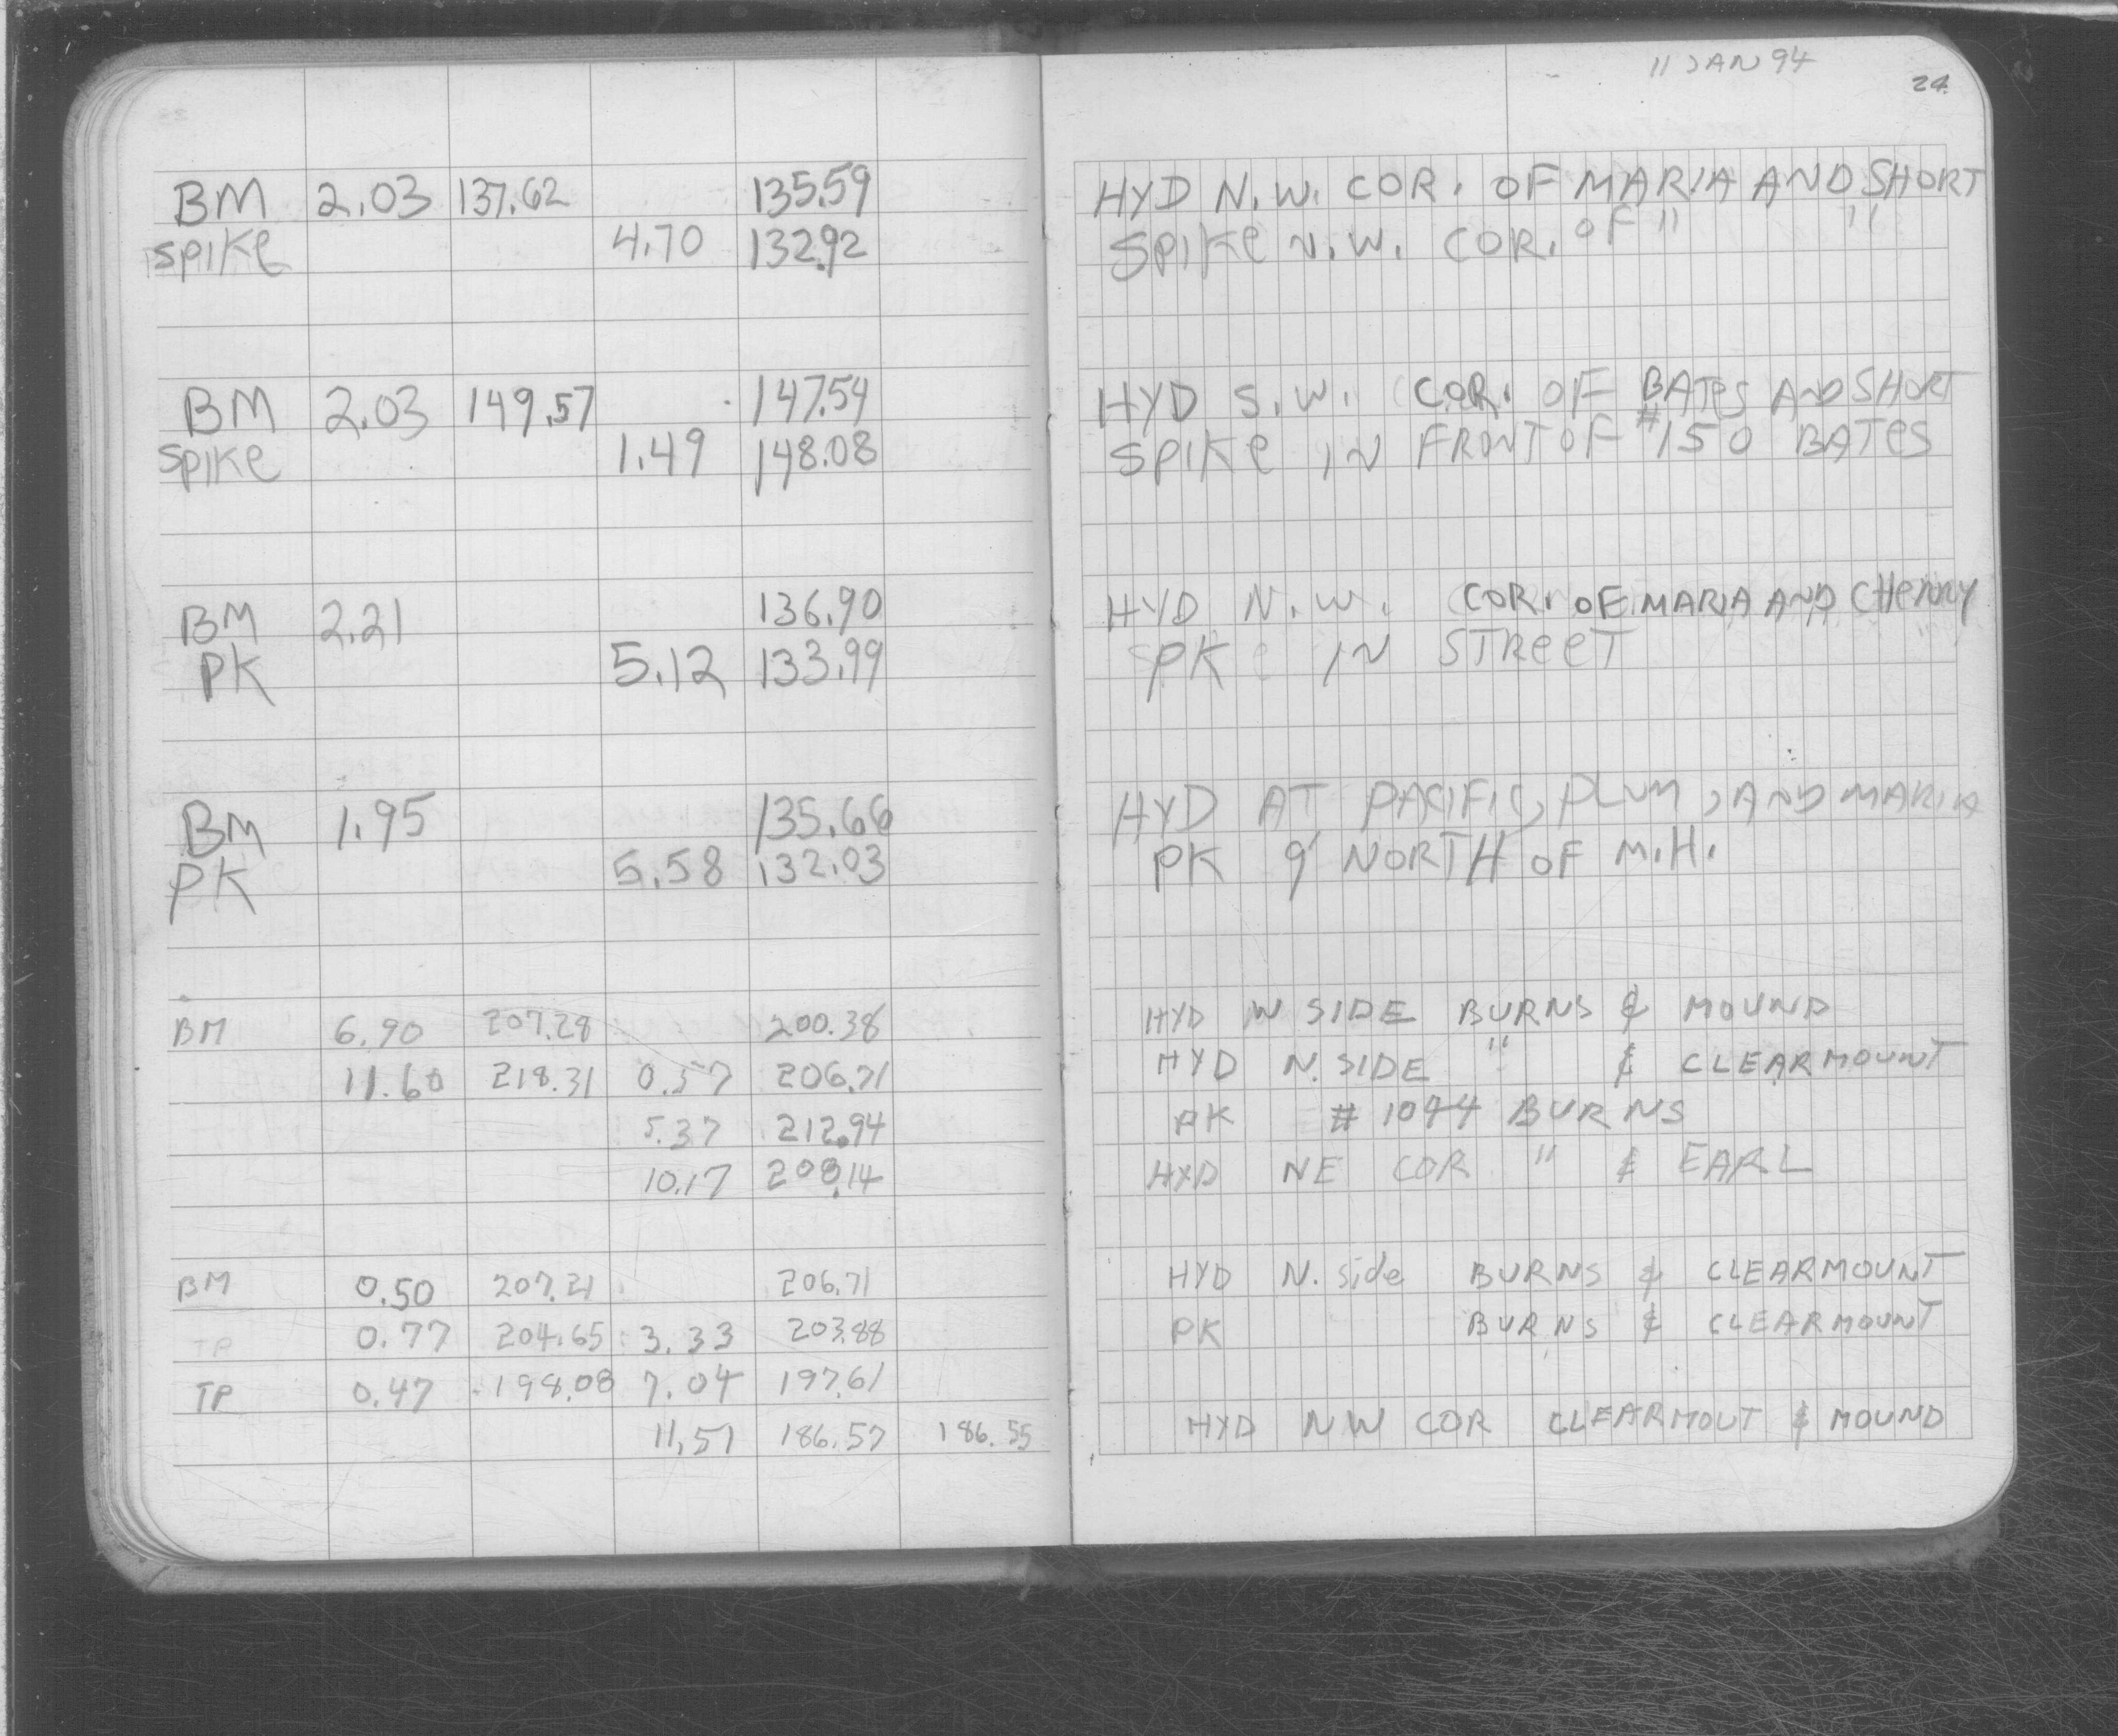 11 JAN 94
24
BM 2.03 137.62 135.59 HYD N.W. COR. OF MARIA AND SHORT
SPIKe 4.70 132.92 SPIKe N.W. COR. OF " "
BM 2.03 149.57 147.54 HYD S.W. COR. OF BATes AND SHORT
SPIKe 1.49 148.08 SPIKe IN FRONT OF #150 BATes
BM 2.21 136.90 HYD N.W. COR. OF MARIA AND
PK 5.12 133.99 PK IN STReeT
BM 1.95 135.66 HYD AT PACIFIC, PLUM, AND MARIA
PK 5.58 132.03 PK 9' NORTH OF M.H.
BM 6.90 207.28 200.38 HYD W SIDE BURNS & MOUND
11.60 218.31 0.57 206.71 HYD N. SIDE " & CLEARMOUNT
5.37 212.94 PK # 1044 BURNS
10.17 208.14 HYD NE COR " & EARL
BM 0.50 207.21 206.71 HYD N. side BURNS & CLEARMOUNT
TP 0.77 204.65 3.33 203.88 PK BURNS & CLEARMOUNT
TP 0.47 198.08 7.04 197.61
11.51 186.57 186.55 HYD NW COR CLEARMOUT & MOUND